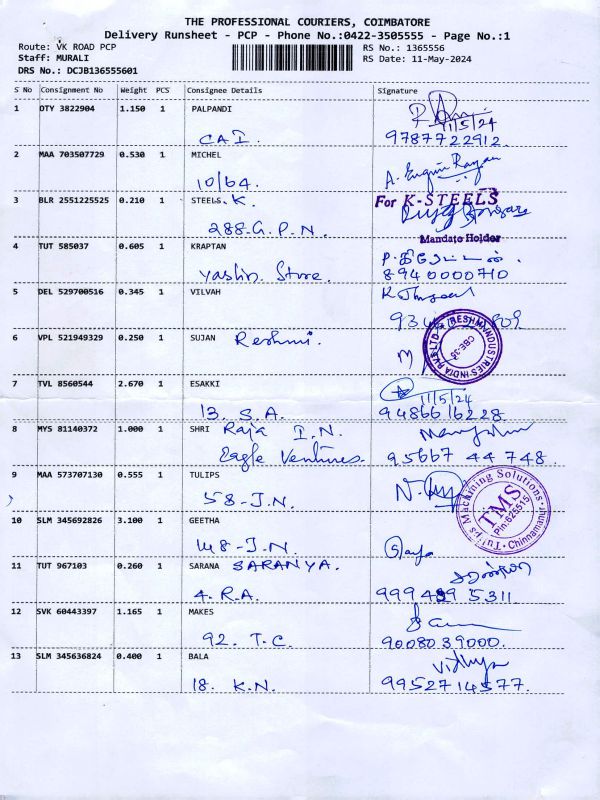 THE PROFESSIONAL COURIERS, COIMBATORE
Delivery Runsheet - PCP - Phone No.:0422-3505555 - Page No.:1
Route: VK ROAD PCP RS No.: 1365556
Staff: MURALI RS Date: 11-May-2024
DRS No.: DCJB136555601
S No Consignment No Weight PCS Consignee Details Signature
1 OTY 3822904 1.150 1 PALPANDI
11/5/24
CAI. 9787722912.
2 MAA 703507729 0.530 1 MICHEL
10/64. A.
3 BLR 2551225525 0.210 1 STEELS.K. For K-STEELS
288-G.P.N.
Mandate Holder
4 TUT 585037 0.605 1 KRAPTAN
Yashin Store. 8940000710
5 DEL 529700516 0.345 1 VILVAH
6 VPL 521949329 0.250 1 SUJAN Reshmi. RESHMI INDUSTRIES INDIA PVT LTD
CBE-35
7 TVL 8560544 2.670 1 ESAKKI
11/5/24
13. S.A. 9486616228
8 MYS 81140372 1.000 1 SHRI Raja I.N.
Eagle Ventures. 95667 44 748
9 MAA 573707130 0.555 1 TULIPS
58-I.N. Tulips Machining Solutions
TMS
Pin:625515
Chinnamanur
10 SLM 345692826 3.100 1 GEETHA
148-I.N.
11 TUT 967103 0.260 1 SARANA SARANYA.
4. R.A. 5311
12 SVK 60443397 1.165 1 MAKES
92. T.C. 9008039000.
13 SLM 345636824 0.400 1 BALA Vidhya
18. K.N. 9952714577.